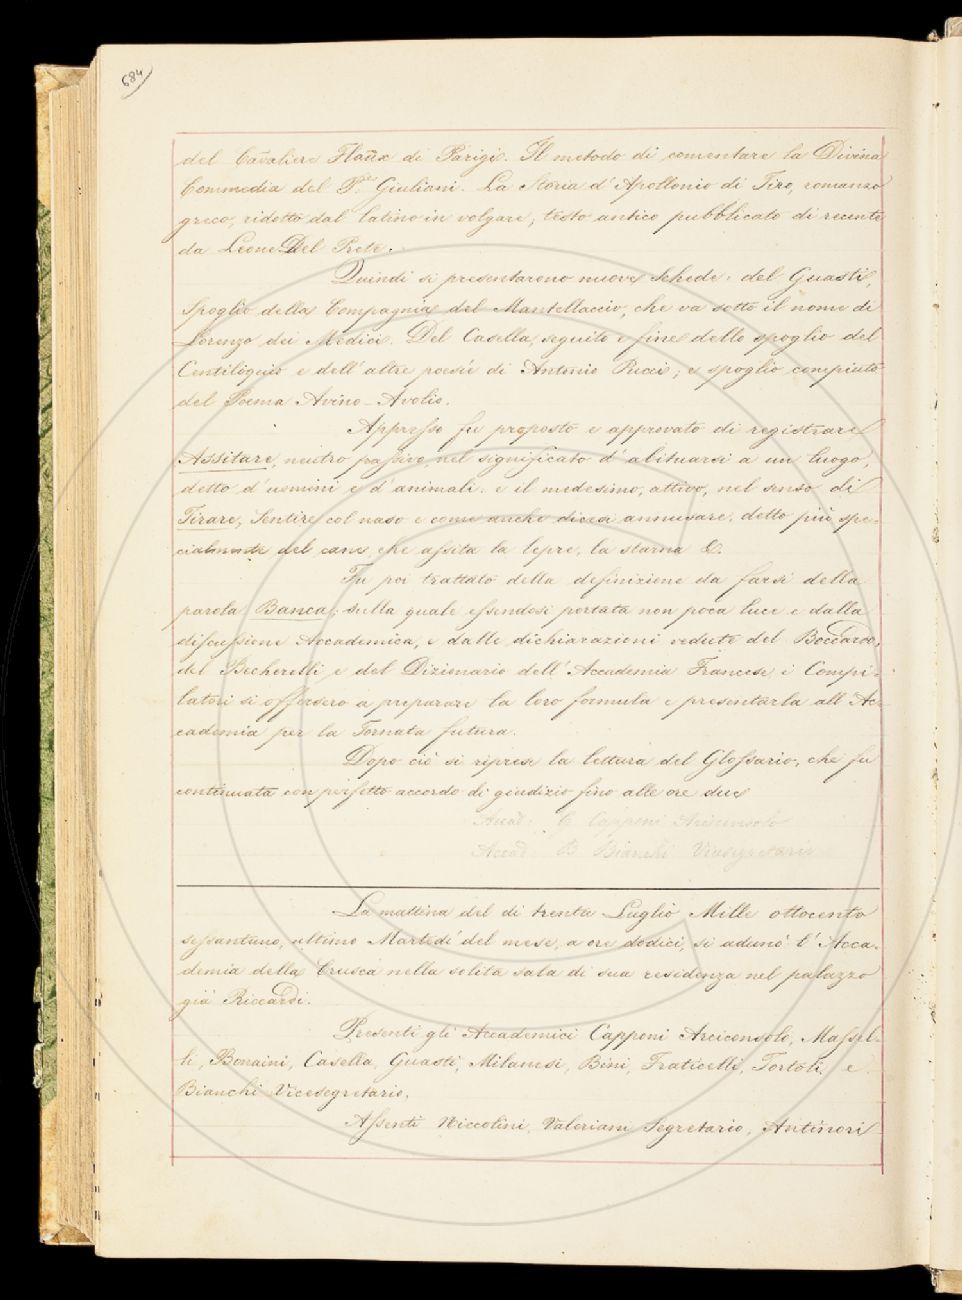 684
del Cavaliere Flaux di Parigi. Il metodo di comentare la Divina
Commedia del P.e Giuliani. La Storia d'Apollonio di Tiro, romanzo
greco, ridotto dal latino in volgare, testo antico pubblicato di recente
da Leone Del Prete.
Quindi si presentarono nuove schede: del Guasti,
Spoglio della Compagnia del Mantellaccio, che va sotto il nome di
Lorenzo dei Medici. Del Casella, seguito e fine dello spoglio del
Centiloquio e dell'altre poesie di Antonio Pucci; e spoglio compiuto
del Poema Avino-Avolio.
Appresso fu proposto e approvato di registrare
Assitare, neutro passivo, nel significato d'abituarsi a un luogo,
detto d'uomini e d'animali: e il medesimo, attivo, nel senso di
Tirare, Sentire col naso e come anche dicesi annusare, detto più spe-
cialmente del cane, che assita la lepre, la starna &.
Fu poi trattato della definizione da farsi della
parola Banca; sulla quale essendosi portata non poca luce e dalla
discussione Accademica, e dalle dichiarazioni vedute del Boccardo,
del Becherelli e del Dizionario dell'Accademia Francese, i Compi-
latori si offersero a preparare la loro formula e presentarla all'Ac-
cademia per la Tornata futura.
Dopo ciò si riprese la lettura del Glossario, che fu
continuata con perfetto accordo di giudizio fino alle ore due
Accad. G. Capponi Arciconsolo
Accad. B. Bianchi Vicesegretario
La mattina del di trenta Luglio Mille ottocento
sessantuno, ultimo Martedi' del mese, a ore dodici, si adunò l'Acca-
demia della Crusca nella solita sala di sua residenza nel palazzo
già Riccardi.
Presenti gli Accademici Capponi Arciconsolo, Massel-
li, Bonaini, Casella, Guasti, Milanesi, Bini, Fraticelli, Tortoli, e
Bianchi Vicesegretario,
Assenti Niccolini, Valeriani Segretario, Antinori